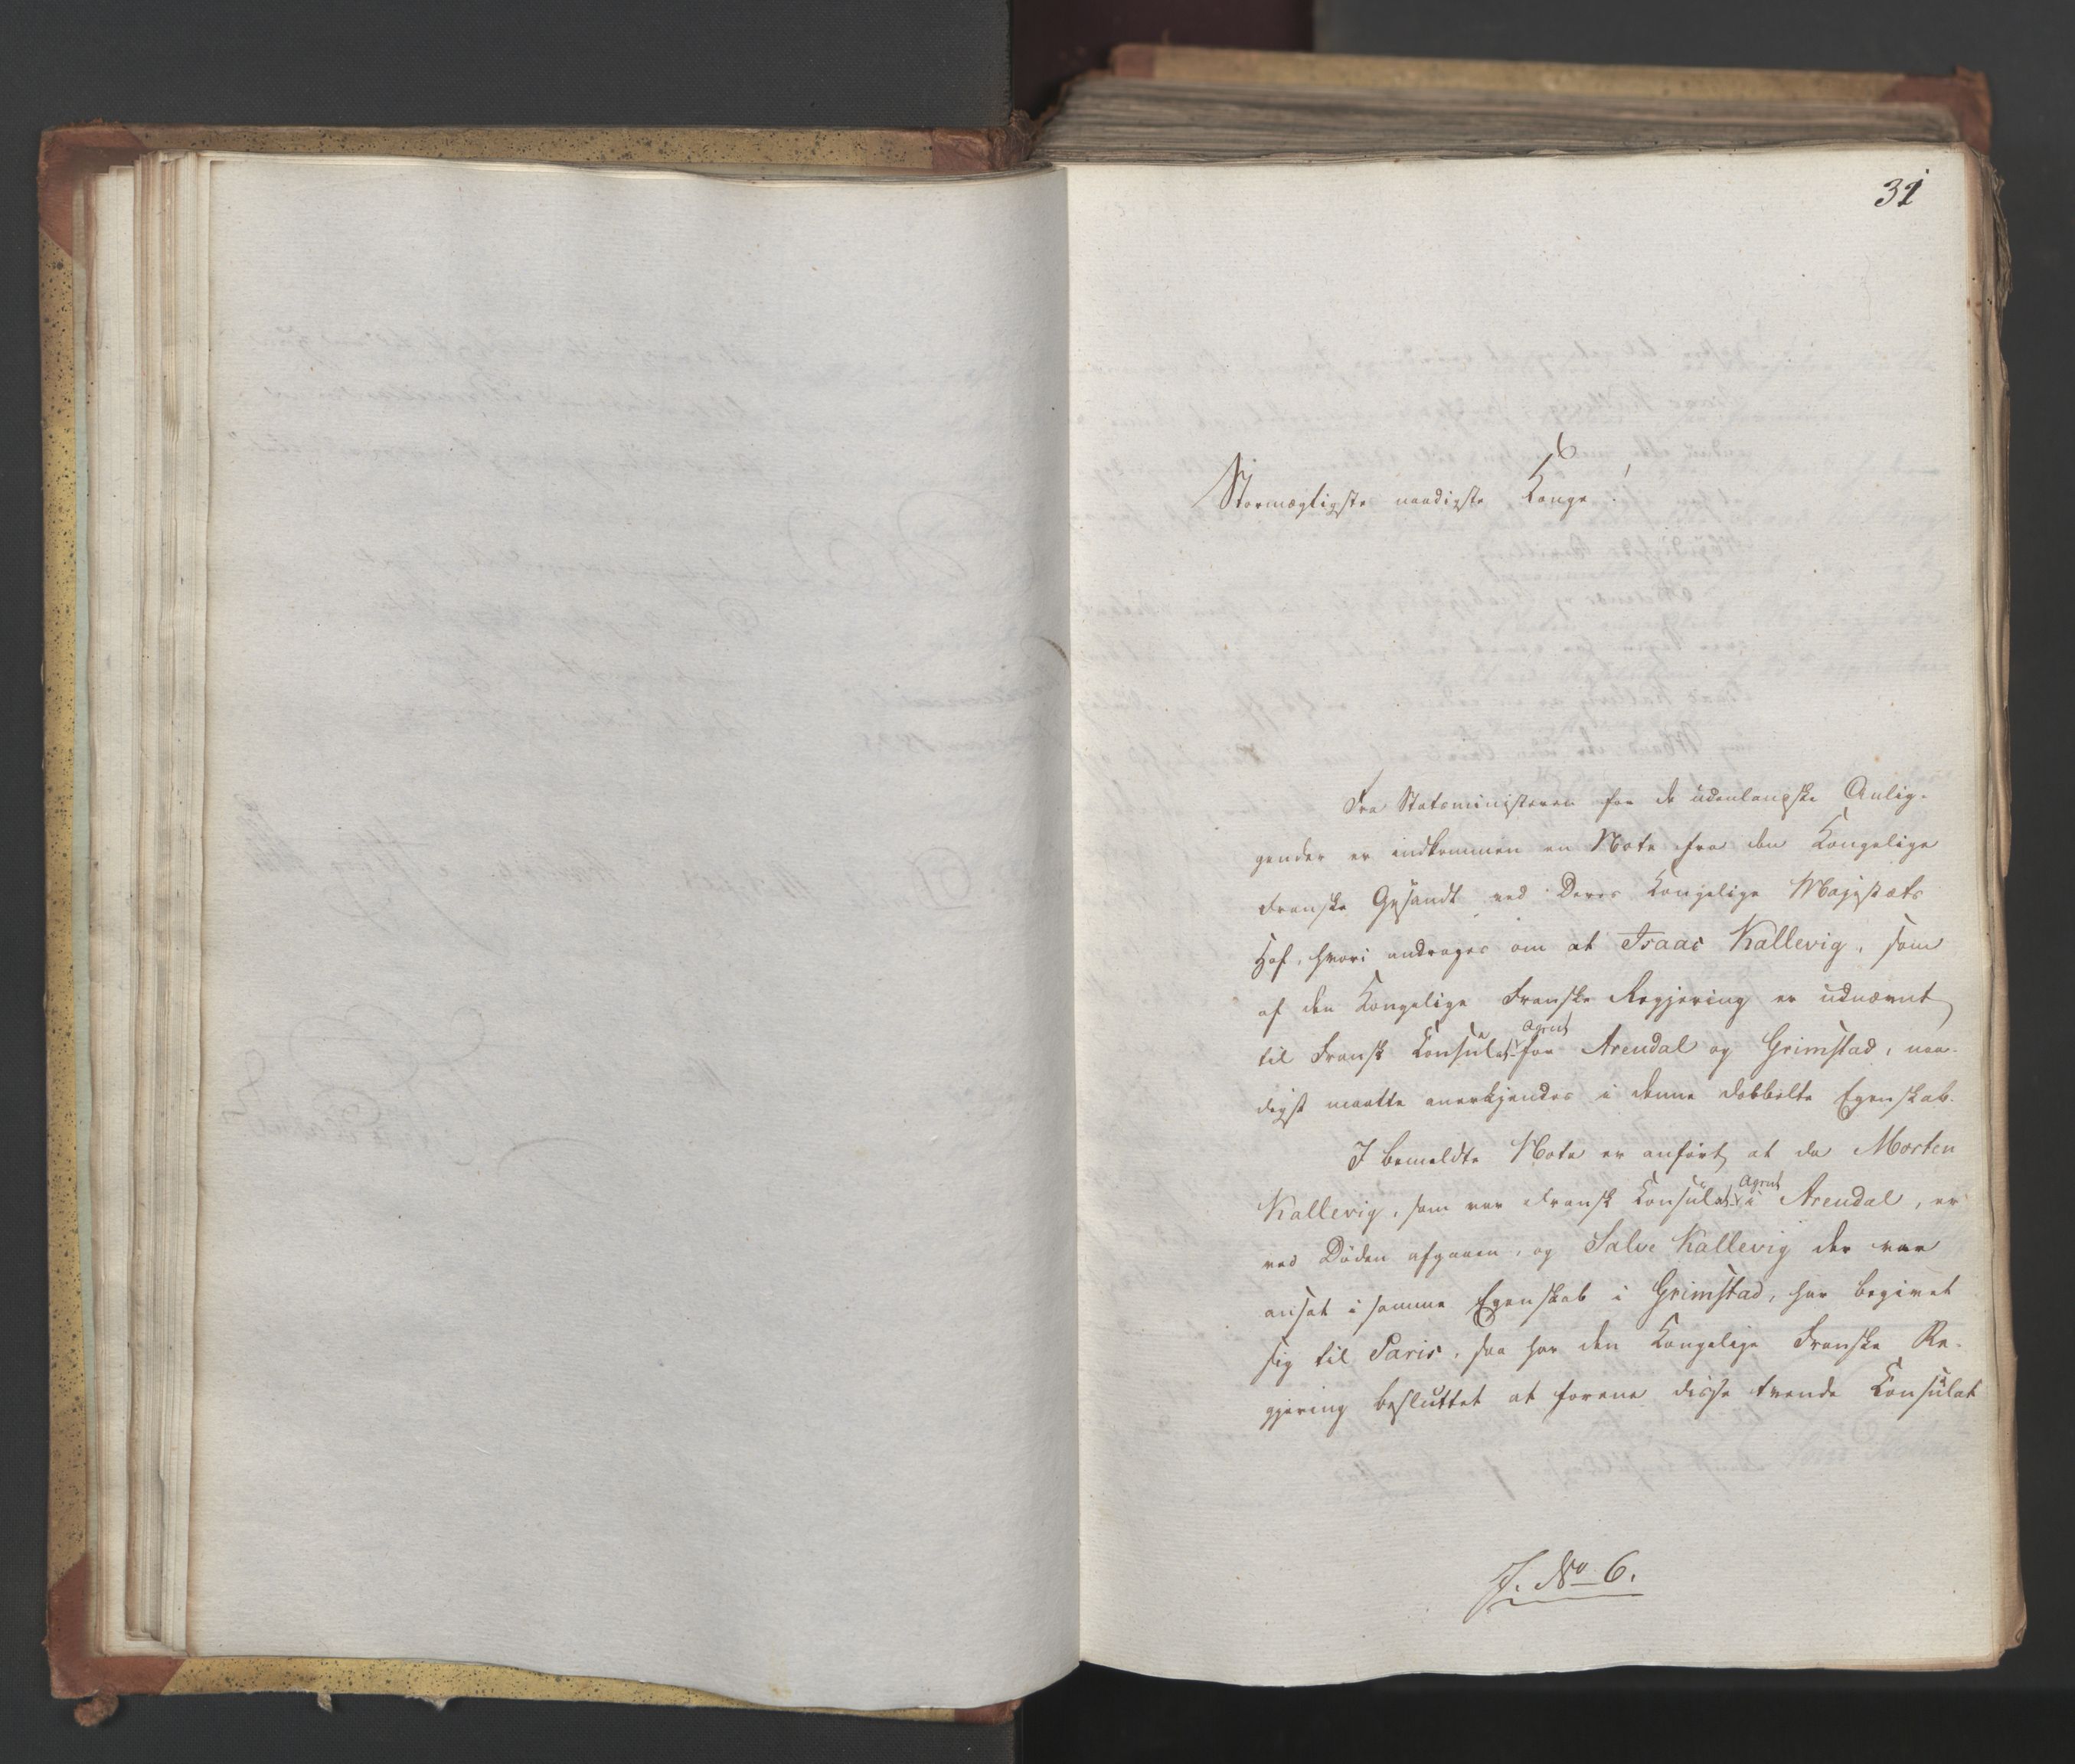 31
Stormægtigste naadigste Konge!
Fra Statsministeren for de udenlandske Anlig-
gender er indkommen en Note fra den Kongelige
Franske Gesandt ved Deres Kongelige Majestæts
Hof, hvori andrages om at Isaac Kallevig, som
af den Kongelige Franske Regjering er udnævnt
til Fransk Consulat-Agent for Arendal og Grimstad, naa-
digst maatte anerkjendes i denne dobbelte Egenskab.
I bemeldte Note er anført, at da Morten
Kallevig, som var Fransk Consulat-Agent i Arendal, er
ved Døden afgaaen, og Salve Kallevig der var
ansat i samme Egenskab i Grimstad, har begivet
sig til Paris, saa har den Kongelige Franske Re-
gjering besluttet at forene disse tvende Consulat
J. No 6.